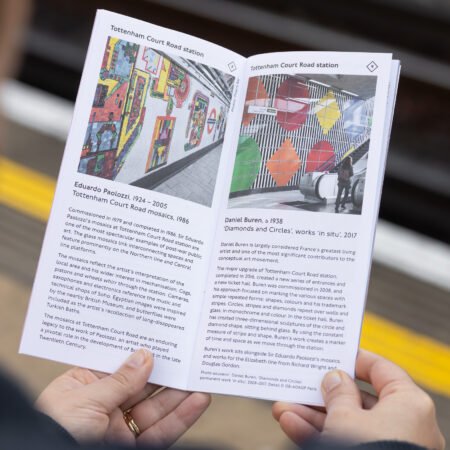 Tottenham Court Road station
Eduardo Paolozzi, 1924 – 2005
Tottenham Court Road mosaics, 1986
Commissioned in 1979 and completed in 1986, Sir Eduardo
Paolozzi's mosaics at Tottenham Court Road station are
one of the most spectacular examples of post-war public
art. The glass mosaics link interconnecting spaces and
feature prominently on the Northern line and Central
line platforms.
The mosaics reflect the artist's interpretation of the
local area and his wider interest in mechanisation. Cogs,
pistons and wheels whirr through the station. Cameras,
saxophones and electronics reference the music and
technical shops of Soho. Egyptian images were inspired
by the nearby British Museum, and butterflies were
included as the artist's recollection of long-disappeared
Turkish Baths.
The mosaics at Tottenham Court Road are an enduring
legacy to the work of Paolozzi, an artist who played
a pivotal role in the development of British art in the late
Twentieth Century.
Tottenham Court Road station
Daniel Buren, b 1938
'Diamonds and Circles', works 'in situ', 2017
Daniel Buren is largely considered France's greatest living
artist and one of the most significant contributors to the
conceptual art movement.
The major upgrade of Tottenham Court Road station,
completed in 2016, created a new series of entrances and
a new ticket hall. Buren was commissioned in 2008, with
his approach focused on marking the various spaces with
simple repeated forms: shapes, colours and his trademark
stripes. Circles, stripes and diamonds repeat over walls and
glass, in monochrome and colour. In the ticket hall, Buren
has created three-dimensional sculptures of the circle and
diamond shape, sitting behind glass. By using the constant
measure of stripe and shape, Buren's work creates a marker
of time and space as we move through the station.
Buren's work sits alongside Sir Eduardo Paolozzi's mosaics
and works for the Elizabeth line from Richard Wright and
Douglas Gordon.
Photo-souvenir: Daniel Buren, 'Diamonds and Circles',
permanent work 'in situ', 2008-2017. Detail © DB-ADAGP Paris